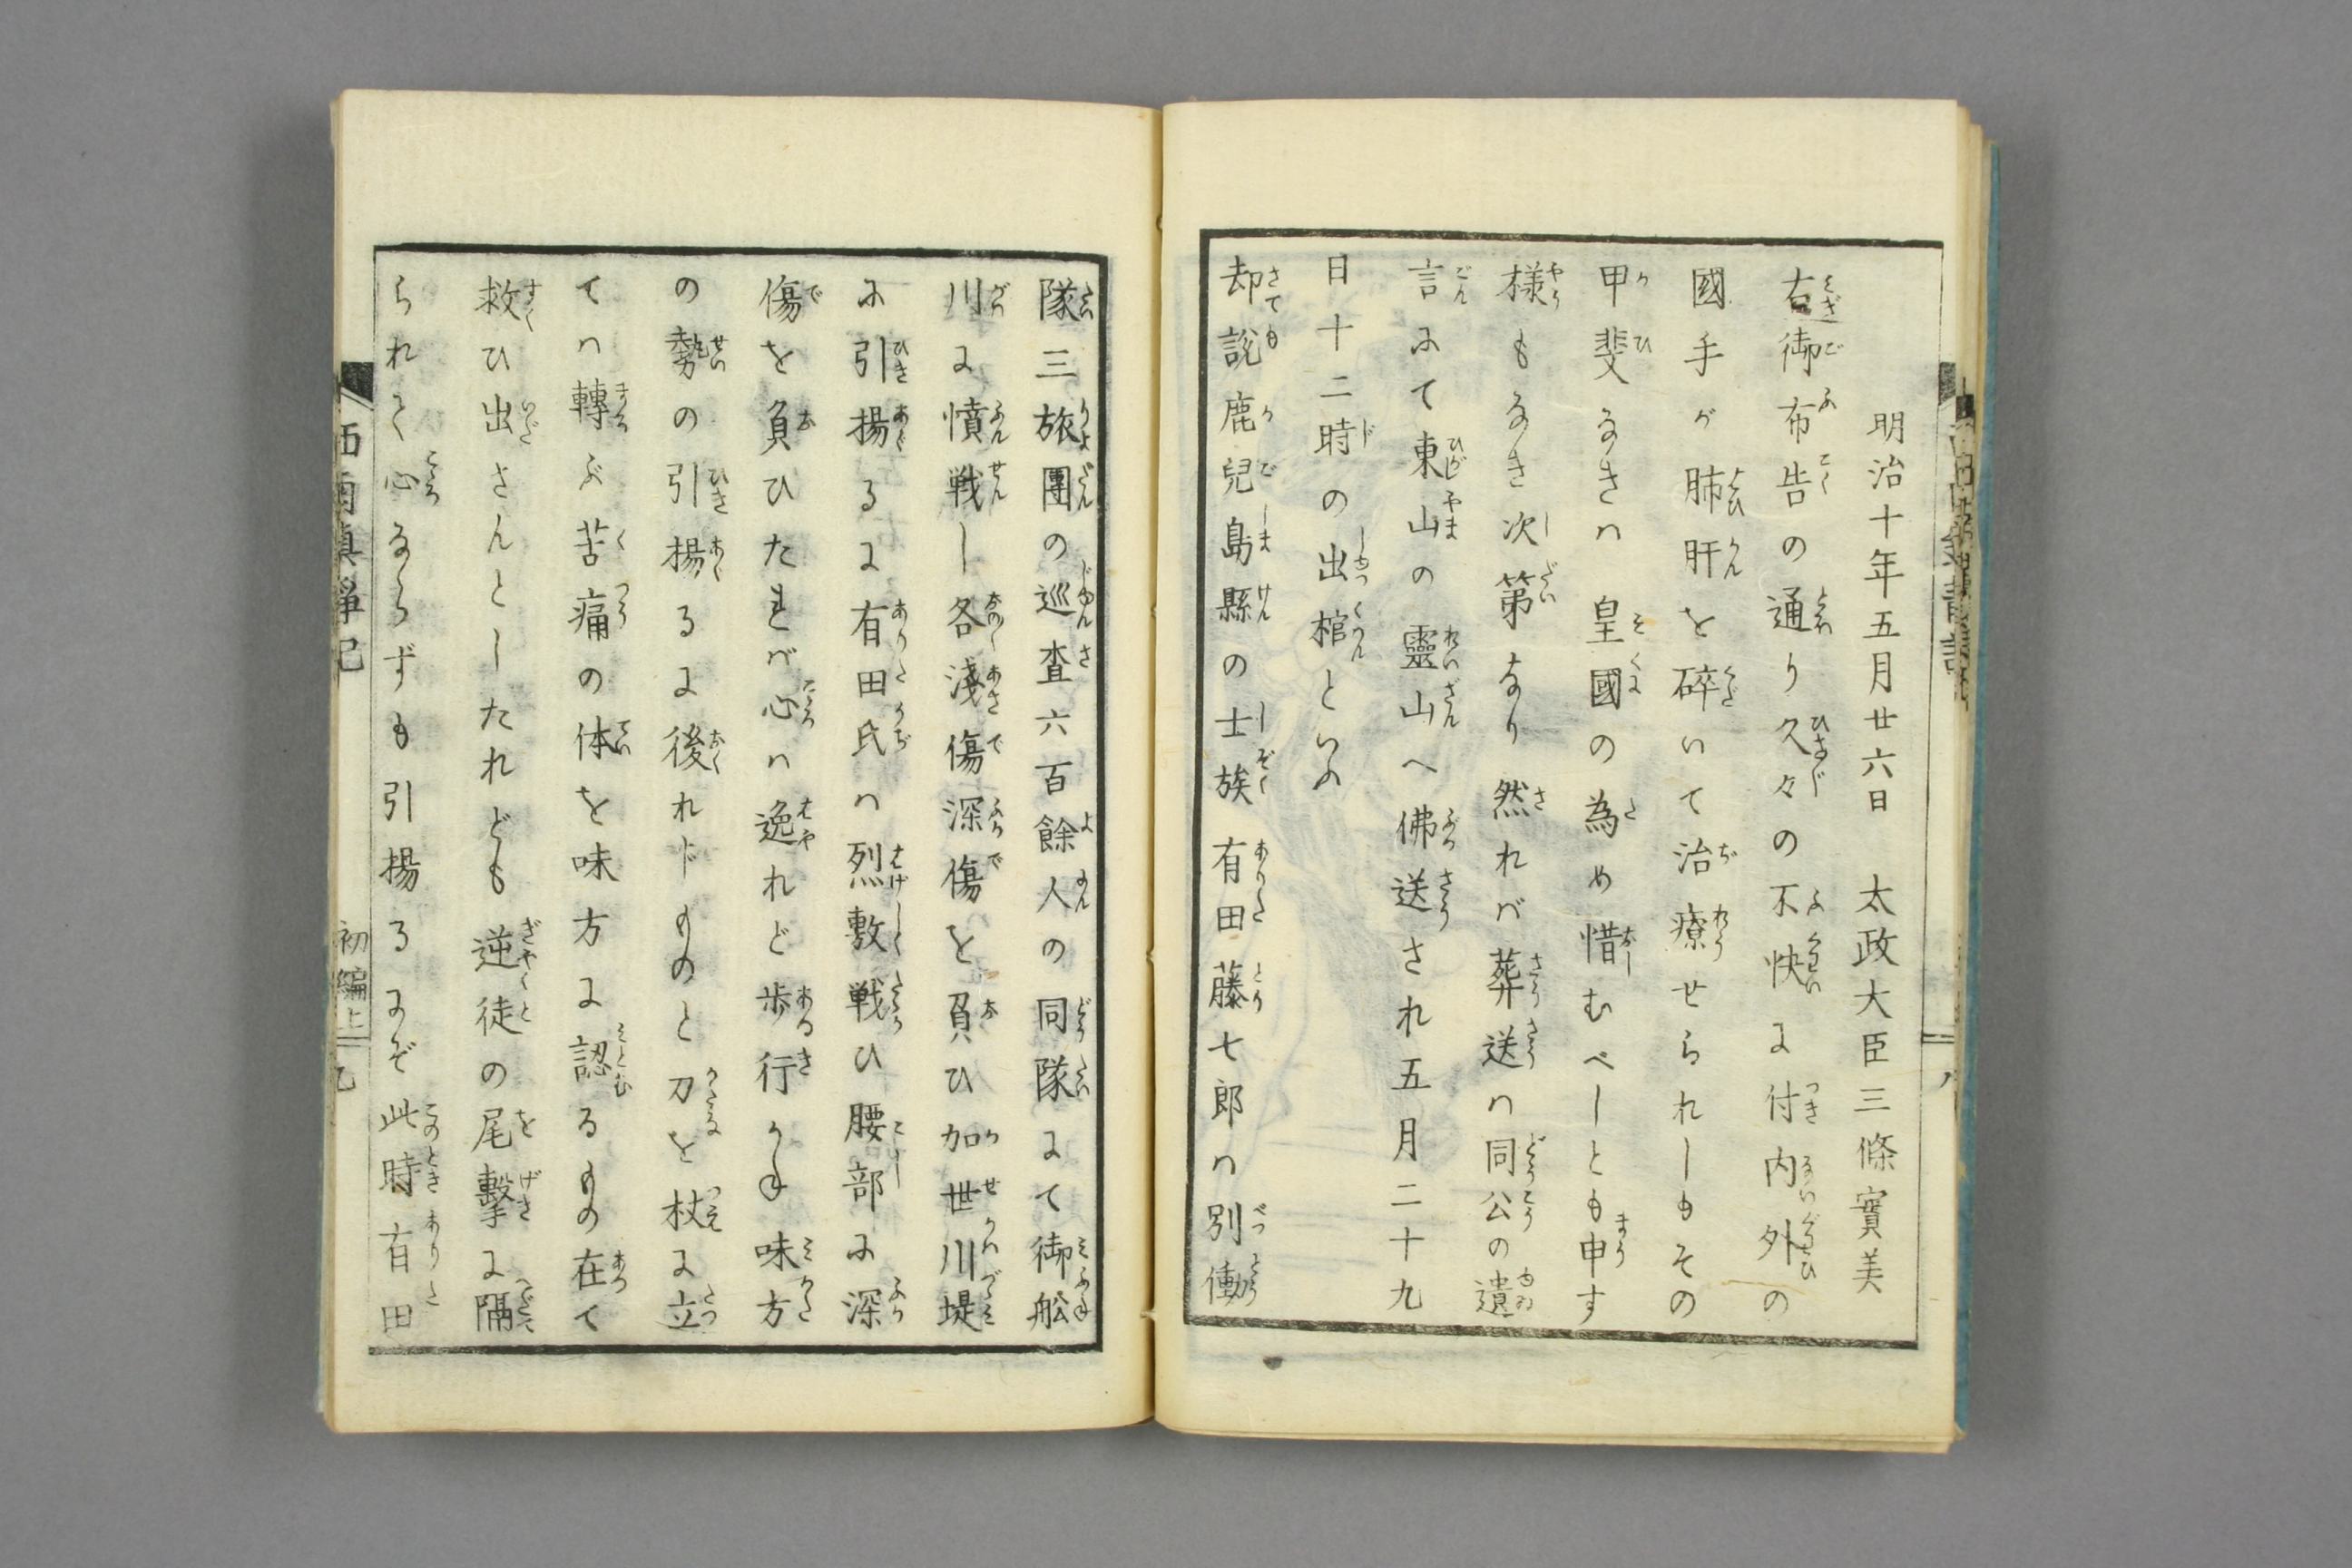 明治十年五月廿六日 太政大臣三條實美
右御布告の通り久々の不快に付内外の
國手が肺肝を碎いて治療せられしもその
甲斐なきハ皇國の為め惜むべしとも申す
様もなき次第なり然れバ葬送ハ同公の遺
言にて東山の靈山へ佛送され五月二十九
日十二時の出棺といふ
却説鹿兒島縣の士族有田藤七郎ハ別働
隊三旅團の巡査六百餘人の同隊にて御舩
川に憤戦し各淺傷深傷を負ひ加世川堤
に引揚るに有田氏ハ烈敷戦ひ腰部に深
傷を負ひたれバ心ハ逸れど歩行かね味方
の勢の引揚るに後れドものと刀を杖に立
てハ轉ぶ苦痛の体を味方に認るもの在て
救ひ出さんとしたれども逆徒の尾撃に隔
られて心ならずも引揚るにぞ此時有田
初編上 九